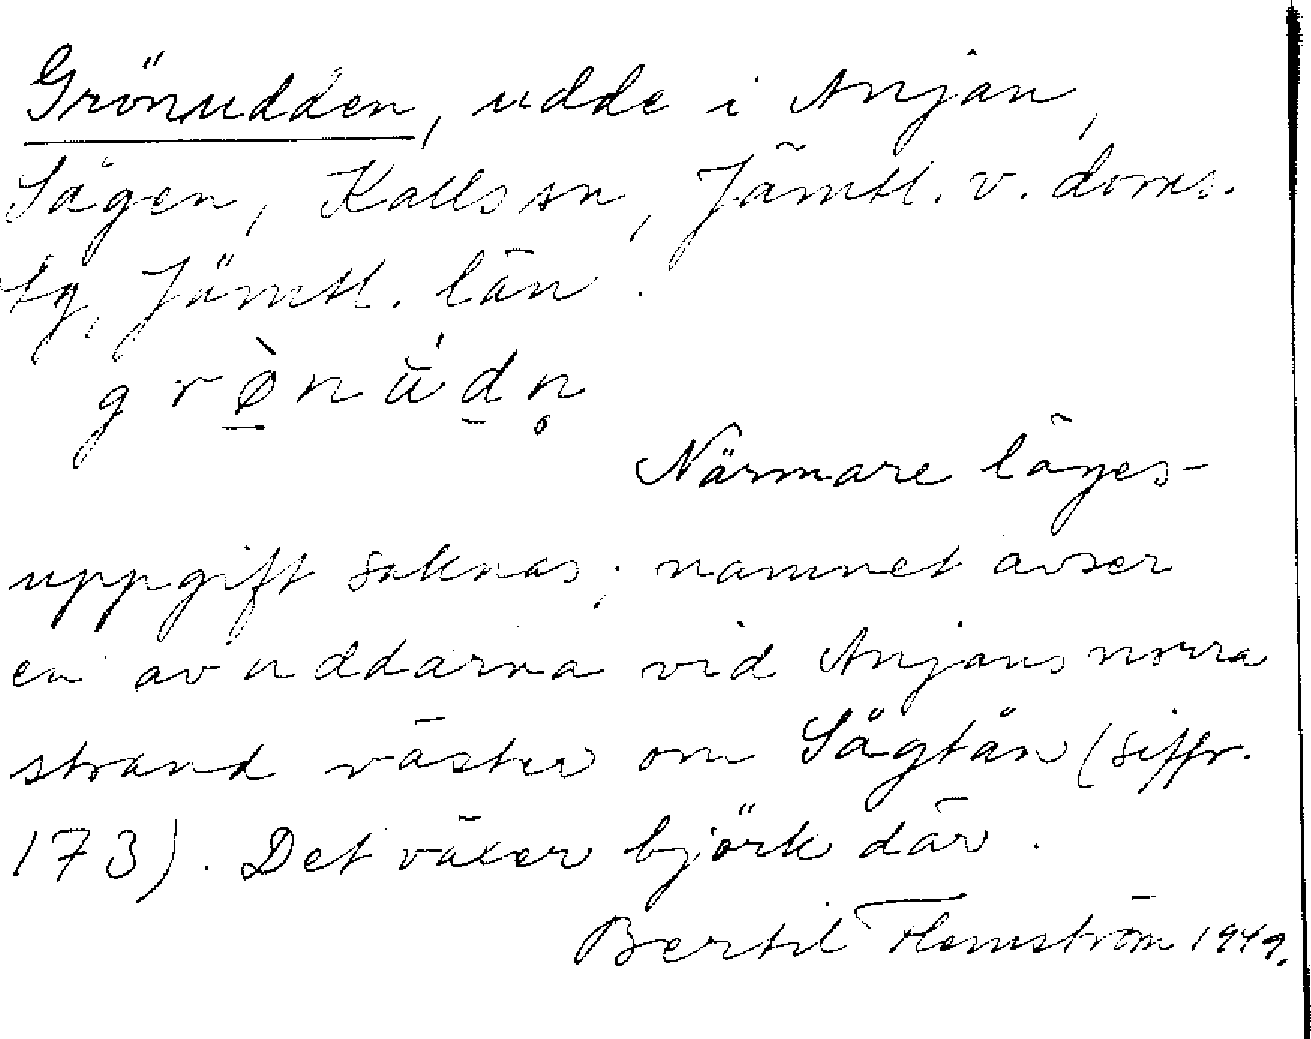 Grönudden, udde i Anjan,
Sågen, Kalls sn, Jämtl. v. doms.
tg, Jämtl. län.
grø̀nŭ́dn̥
Närmare läges-
uppgift saknas; namnet avser
en av uddarna vid Anjans norra
strand väster om Sågtån (siffr.
173). Det växer björk där.
Bertil Flemström 1949.